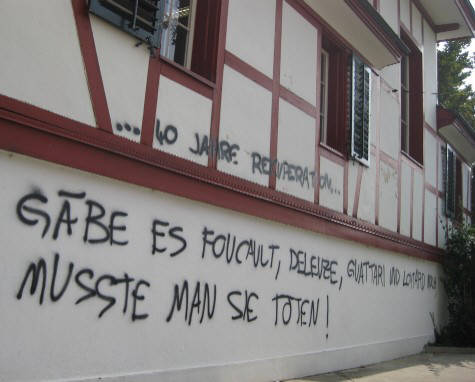 ... 40 JAHRE REKUPERATION...
GÄBE ES FOUCAULT, DELEUZE, GUATTARI UND LYOTARD NOCH
MÜSSTE MAN SIE TÖTEN!